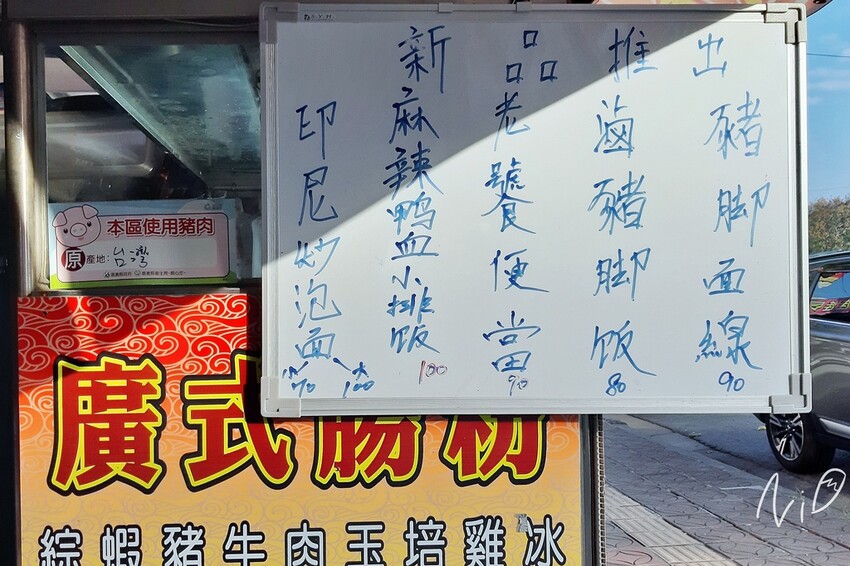 新品推出
豬脚面線 90
滷豬脚饭 80
老饕便當 90
麻辣鸭血小排饭 100
印尼炒泡面 小70 大100
本區使用豬肉
原產地: 台灣
廣式腸粉
綜蝦豬牛肉玉培雞冰
NiO